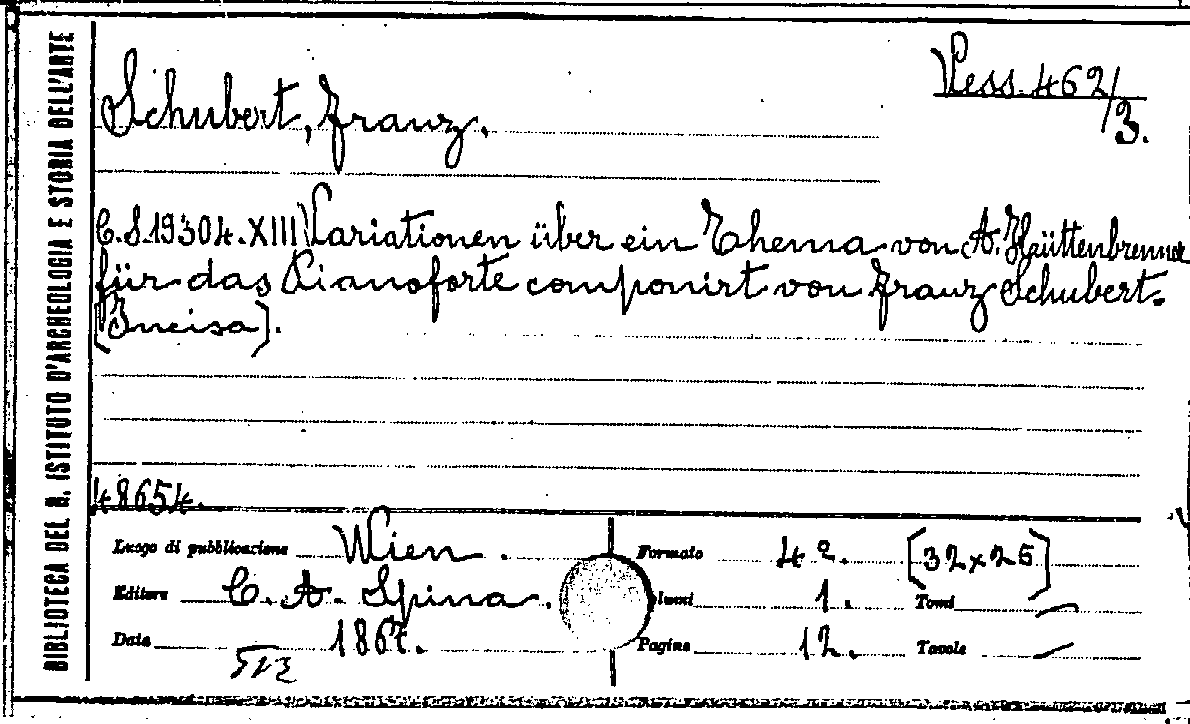 BIBLIOTECA DEL R. ISTITUTO D'ARCHEOLOGIA E STORIA DELL'ARTE
Vess. 462/3.
Schubert, Franz.
C.S.19304.XIII Variationen über ein Thema von A. Hüttenbrenner
für das Pianoforte componirt von Franz Schubert.
[Incisa].
48654.
Luogo di pubblicazione Wien. Formato 4º. [32x25]
Editore C. A. Spina. 1. Tomi —
Data 1867. Pagine 12. Tavole —